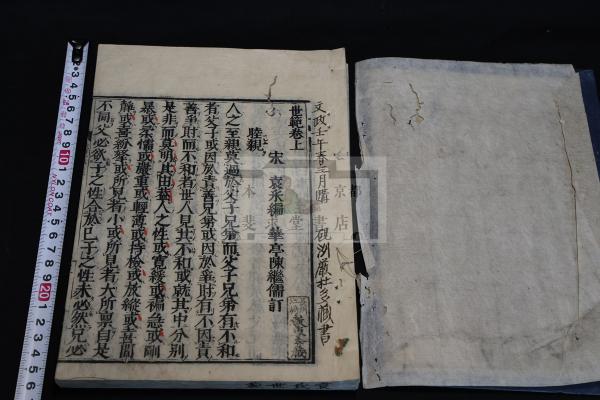 世範卷上
宋 袁采編 華亭陳繼儒訂
睦親
人之至親莫過於父子兄弟而父子兄弟有不和
者父子或因於責善兄弟或因於爭財有不因責
善爭財而不和者世人見其不和或就其中分別
是非而莫明其由蓋人之性或寬緩或褊急或剛
暴或柔懦或嚴重或輕薄或持檢或放縱或喜閒
靜或喜紛拏或所見者小或所見者大所稟自是
不同父必欲子之性合於己子之性未必然兄必
文政壬午春三月購
藏書
京都
書店